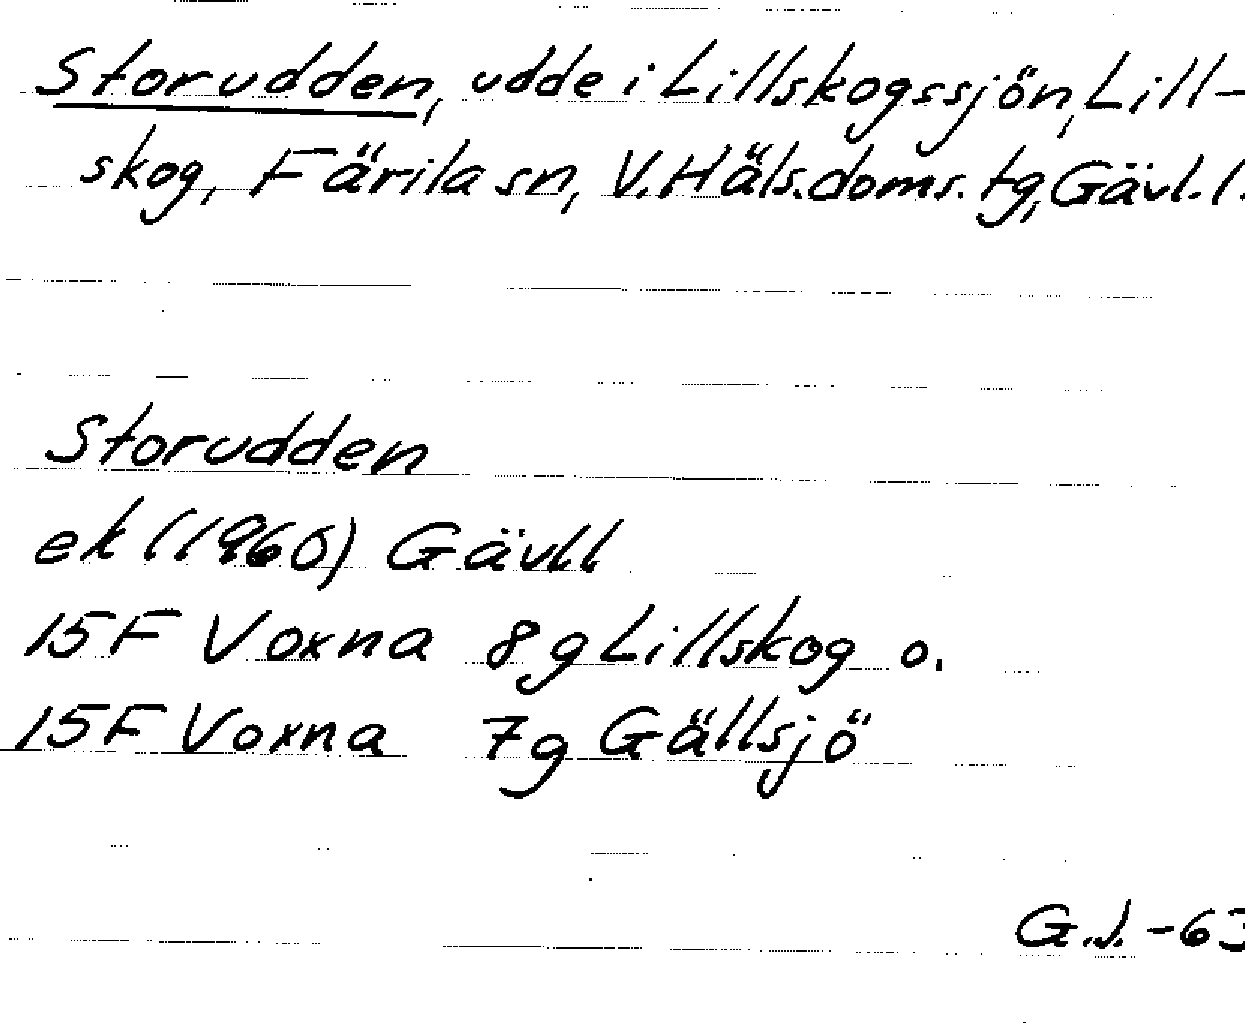 Storudden, udde i Lillskogssjön, Lill-
skog, Färila sn, V. Häls. doms. tg, Gävl. l.
Storudden
ek (1960) Gävll
15F Voxna 8g Lillskog o.
15F Voxna 7g Gällsjö
G.J. -63